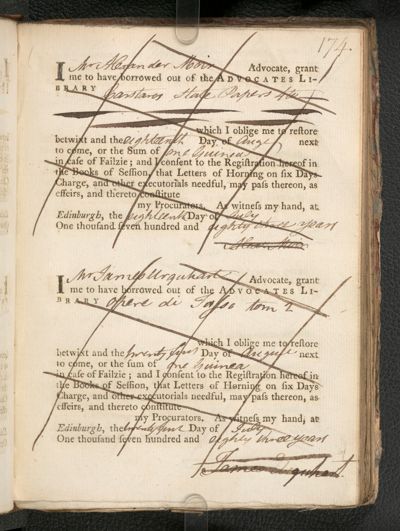 174.
I Mr Alexander Moir Advocate, grant
me to have borrowed out of the ADVOCATES LI-
BRARY Carstares State Papers 4to
which I oblige me to reſtore
betwixt and the eighteenth Day of Augt next
to come, or the Sum of one Guinea
in caſe of Failzie; and I conſent to the Regiſtration hereof in
the Books of Seſſion, that Letters of Horning on ſix Days
Charge, and other executorials needful, may paſs thereon, as
effeirs, and thereto conſtitute
my Procurators. As witneſs my hand, at
Edinburgh, the eighteenth Day of July
One thouſand ſeven hundred and eighty three years
Alexr Moir
I Mr James Urquhart Advocate, grant
me to have borrowed out of the ADVOCATES LI-
BRARY opere di Tasso tom 2
which I oblige me to reſtore
betwixt and the twenty first Day of August next
to come, or the ſum of one Guinea
in caſe of Failzie; and I conſent to the Regiſtration hereof in
the Books of Seſſion, that Letters of Horning on ſix Days
Charge, and other executorials needful, may paſs thereon, as
effeirs, and thereto conſtitute
my Procurators. As witneſs my hand, at
Edinburgh, the twenty first Day of July
One thouſand ſeven hundred and eighty three years
James Urquhart